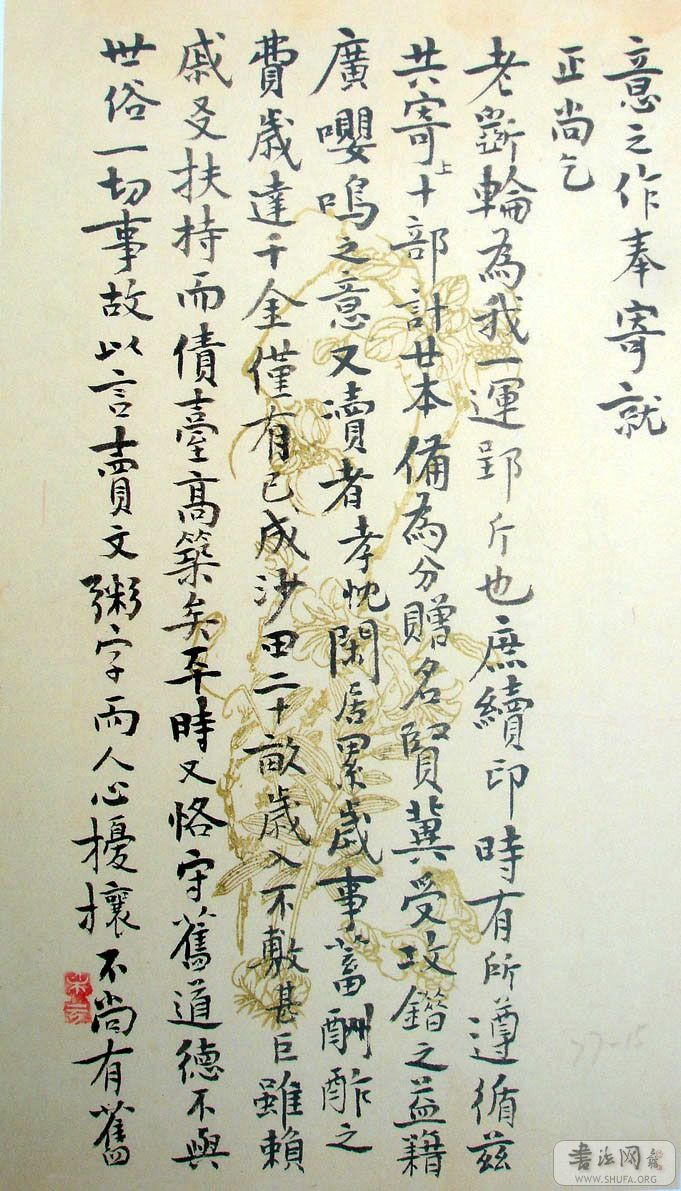 意之作奉寄就
正尚乞
老斲輪為我一運郢斤也庶續印時有所遵循茲
共寄上十部計廿本備為分贈名賢冀受攻錯之益藉
廣嚶鳴之意又瀆者孝忱閑居累歲事蓄酬酢之
費歲達千金僅有已成沙田二十畝歲入不敷甚巨雖賴
戚友扶持而債臺高築矣平時又恪守舊道德不與
世俗一切事故以言賣文鬻字而人心擾攘不尚有舊
77-15
書法网
WWW.SHUFA.ORG